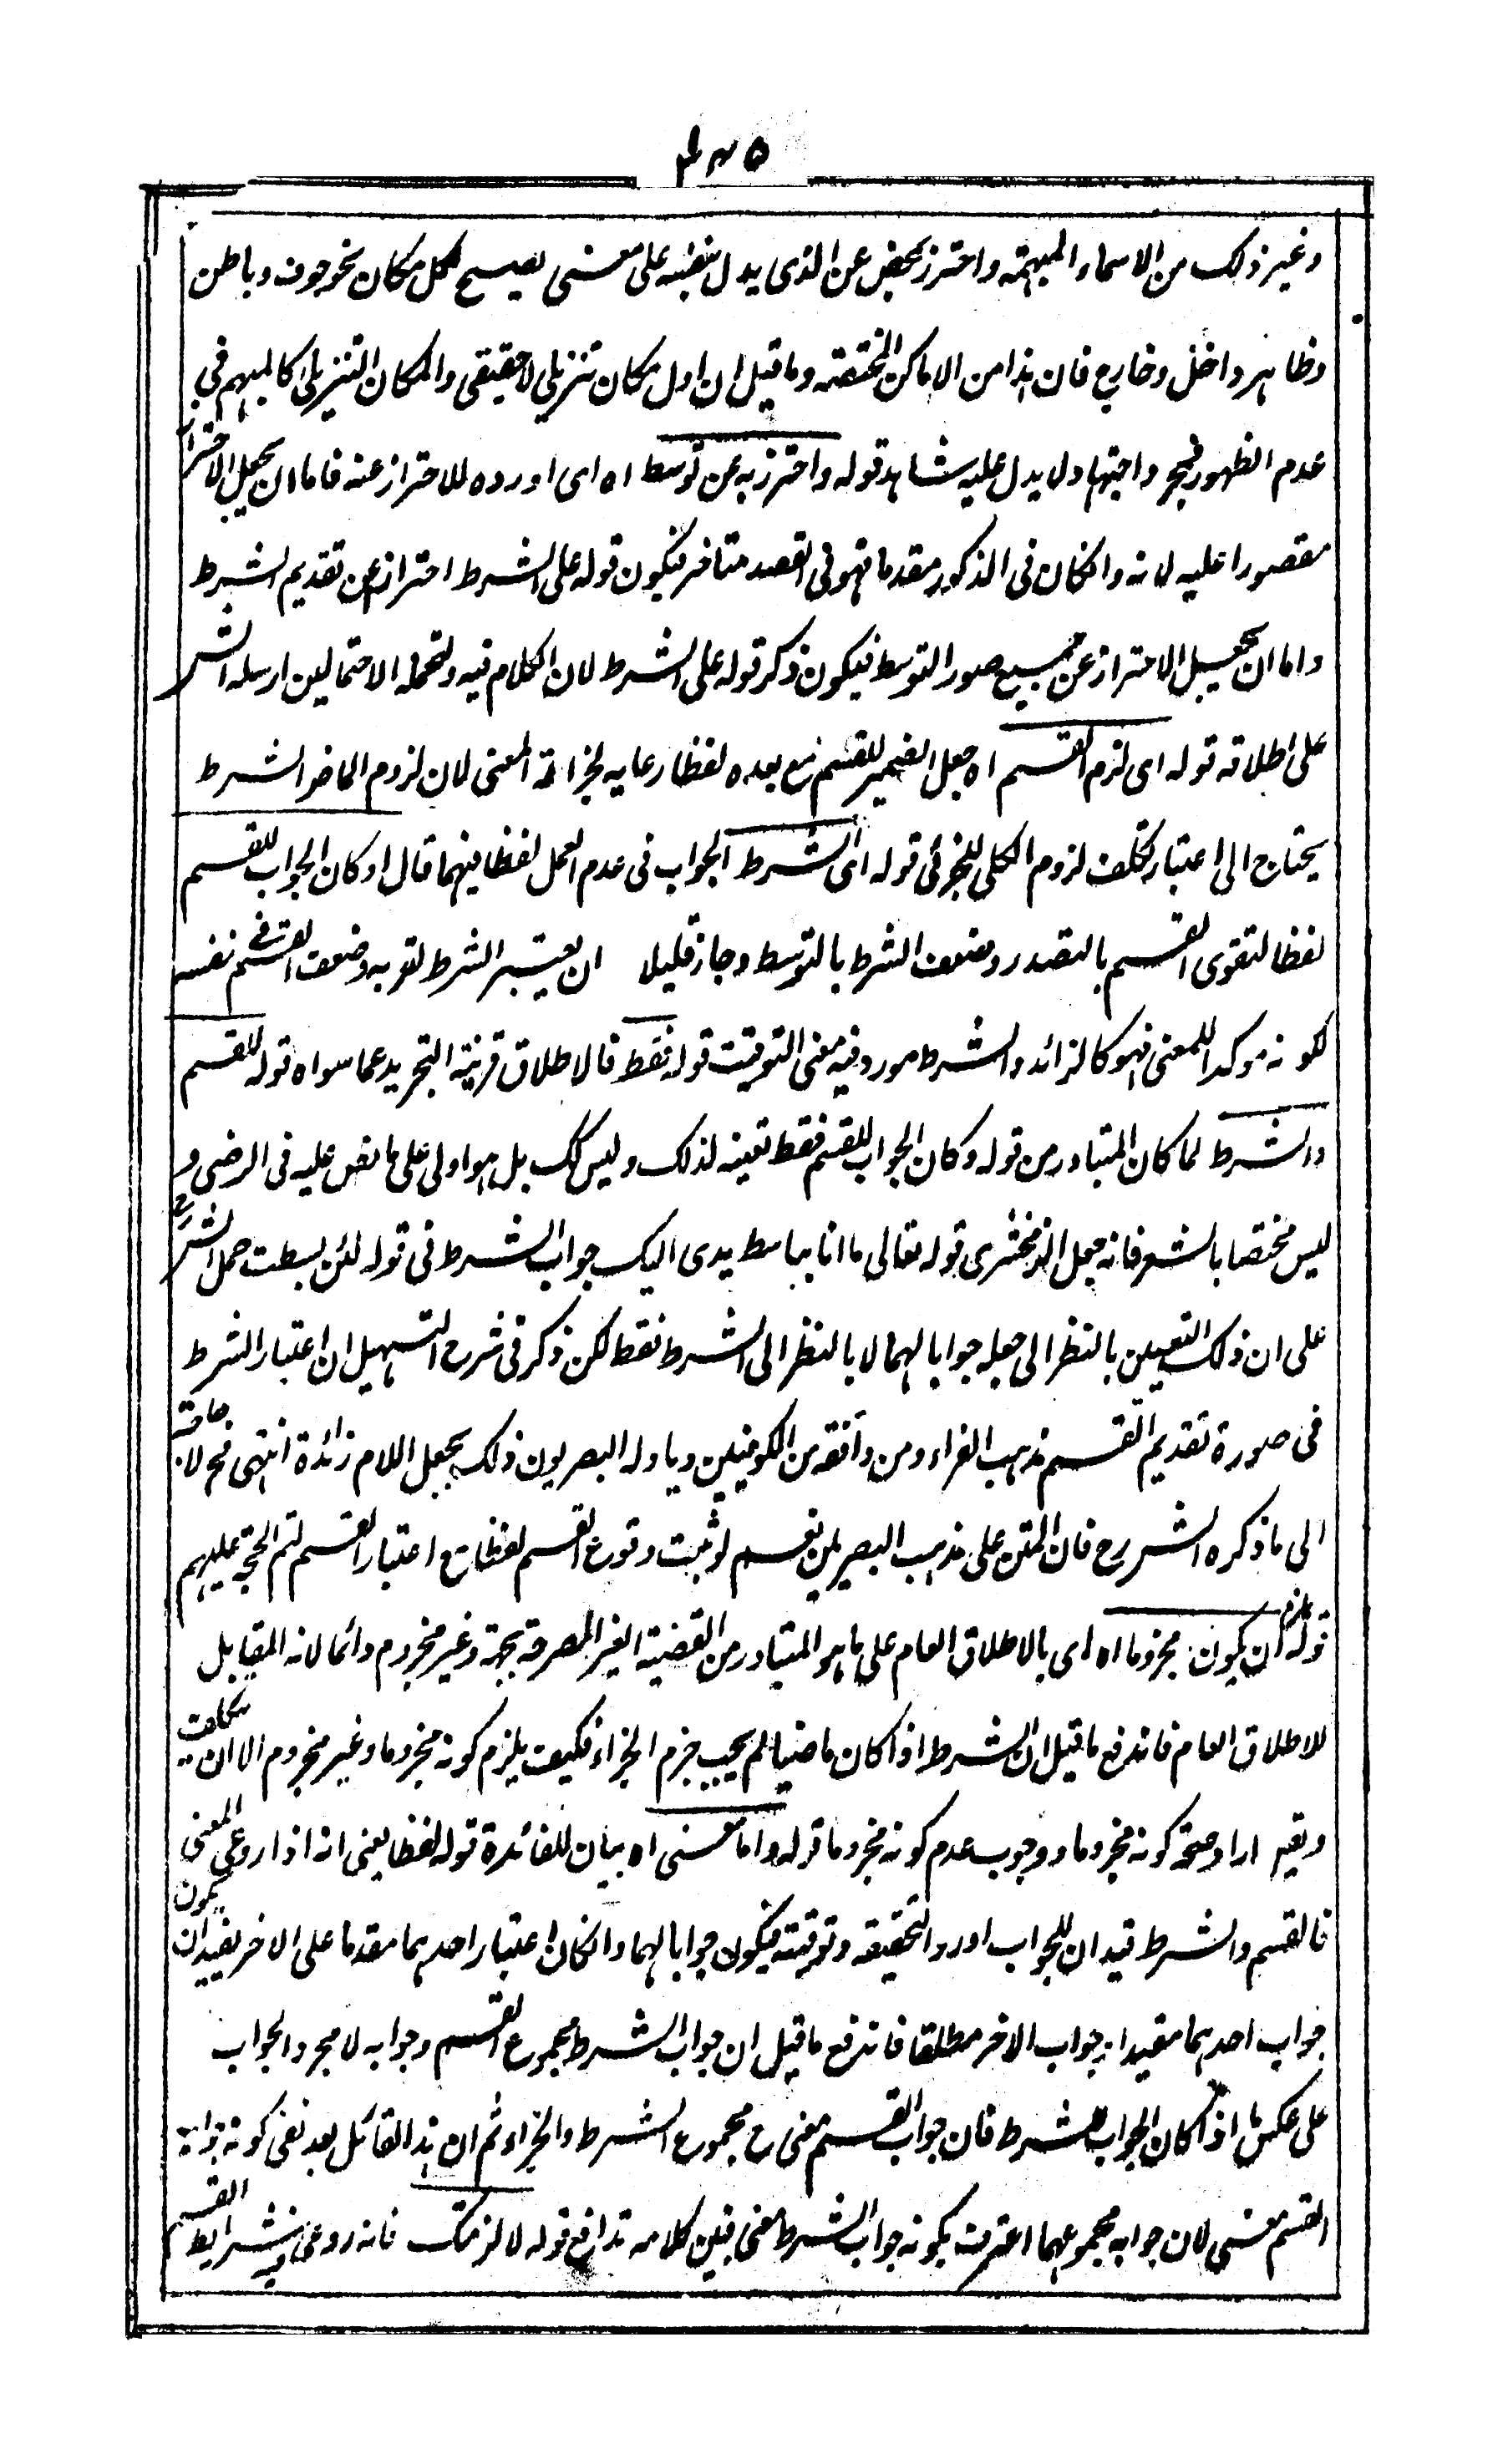 ٤٣٥
وغير ذلك من الاسماء المبهمة واحترز بمحض عن الذى يدل بنفسه على معنى يصح لكل مكان نحو جوف وباطن
وظاهر وداخل وخارج فان هذا من الاماكن المختصة وما قيل ان اول مكان تنزيلى لا حقيقى والمكان التنزيلى كالمبهم في
عدم الظهور فيجر واجتهاد لا يدل عليه شاهد قوله واحترز به عن توسط اه اى اورده للاحتراز عنه فاما ان يجعل الاحتراز
مقصورا عليه لانه وانكان فى الذكر مقدما فهو فى القصد متأخر فيكون قوله على الشرط احترازا عن تقديم الشرط
واما ان يجعل الاحتراز عن جميع صور التوسط فيكون ذكر قوله على الشرط لان الكلام فيه ولتحمله الاحتمالين ارسله الشر
على اطلاقه قوله اى لزم القسم اه جعل الضمير للقسم مع بعده لفظا رعاية لجزالة المعنى لان لزوم الماضى الشرط
يحتاج الى اعتبار تكلف لزوم الكلى للجزئى قوله اى الشرط الجواب فى عدم العمل لفظا فيهما قال او كان الجواب للقسم
لفظا لتقوى القسم بالتصدر وضعف الشرط بالتوسط وجاز قليلا ان يعتبر الشرط لقربه وضعف القسم فى نفسه
لكونه موكدا للمعنى فهو كالزائد والشرط مورد فيه معنى التوقيت قوله فقط فالاطلاق قرينة التجريد عما سواه قوله للقسم
والشرط لما كان المتبادر من قوله وكان الجواب للقسم فقط تعينه لذلك وليس كك بل هو اولى على ما نص عليه فى الرضى و
ليس مختصا بالشعر فانه جعل الزمخشرى قوله تعالى ما انا بباسط يدى اليك جواب الشرط فى قوله لئن بسطت حمل الشرح
على ان ذلك التعيين بالنظر الى جعله جوابا لهما لا بالنظر الى الشرط فقط لكن ذكر فى شرح التسهيل ان اعتبار الشرط
فى صورة تقديم القسم مذهب الفراء ومن وافقه من الكوفيين وياوله البصريون ذلك بجعل اللام زائدة انتهى فح لا حاجة
الى ما ذكره الشرح فان المتن على مذهب البصريين نعم لو ثبت وقوع القسم لفظا مع اعتبار القسم لتم الحجة عليهم
قوله يلزم ان يكون مجزوما اه اى بالاطلاق العام على ما هو المتبادر من القضية الغير المصرحة بجهة وغير مجزوم دائما لانه المقابل
للاطلاق العام فاندفع ما قيل ان الشرط اذا كان ماضيا لم يجب جزم الجزاء فكيف يلزم كونه مجزوما وغير مجزوم الا ان يتكلف
ويقيد اراد صحة كونه مجزوما ووجوب عدم كونه مجزوما قوله واما معنى اه بيان للفائدة قوله لفظا يعنى انه اذا روعى المعنى
فالقسم والشرط قيدان للجواب اورد لتحقيقه وتوقيته فيكون جوابا لهما وانكان اعتبار احدهما مقدما على الاخر يفيد ان يكون
جواب احدهما مقيدا بجواب الاخر مطلقا فاندفع ما قيل ان جواب الشرط مجموع القسم وجوابه لا مجرد الجواب
على عكس ما اذا كان الجواب للشرط فان جواب القسم معنى ح مجموع الشرط والجزاء ثم ان هذا القائل بعد نفى كونه جواب
القسم معنى لان جوابه مجموعهما اعترف بكونه جواب الشرط معنى فبين كلامه تدافع قوله لا لزمتك فانه روعى فيه شرايط القسم